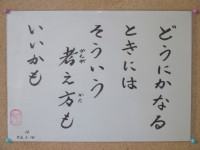 どうにかなる
ときには
そういう
考え方も
いいかも